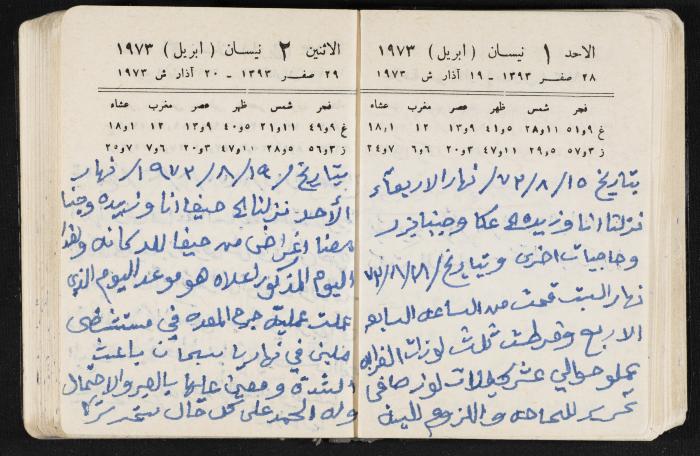 الاحد ١ نيسان ( ابريل ) ١٩٧٣
٢٨ صفر ١٣٩٣ ـ ١٩ آذار ش ١٩٧٣
فجر شمس ظهر عصر مغرب عشاء
غ ٩و٥١ ١١و٢٨ ٥و٤١ ٩و١٣ ١٢ ١و١٨
ز ٣و٥٧ ٥و٢٩ ١١و٤٧ ٣و٢٠ ٦و٦ ٧و٢٤
بتاريخ ١٥/٨/٧٣/ نهار الاربعاء
نزلنا انا وزبيده الى عكا وجبنا
وحاجيات اخرى وبتاريخ
نهار السبت قمت من الساعه السابعه
الاربع وفرطت ثلث لوزات
عملو حوالي عشر كيلوات لوز صافي
الاثنين ٢ نيسان ( ابريل ) ١٩٧٣
٢٩ صفر ١٣٩٣ ـ ٢٠ آذار ش ١٩٧٣
فجر شمس ظهر عصر مغرب عشاء
غ ٩و٤٩ ١١و٢١ ٥و٤٠ ٩و١٣ ١٢ ١و١٨
ز ٣و٥٦ ٥و٢٨ ١١و٤٧ ٣و٢٠ ٦و٧ ٧و٢٥
بتاريخ /١٩/٨/١٩٧٣/ نهار
الأحد نزلنا الى حيفا انا وزبيده وجبنا
معنا اغراض من حيفا للدكانه وهذا
اليوم المذكور اعلاه هو موعد اليوم الذي
عملت عملية جرح المعده في مستشفى
في نهاريا سبحان باعث
الشدة ومعين عليها بالصبر والاحتمال
وله الحمد على كل حال